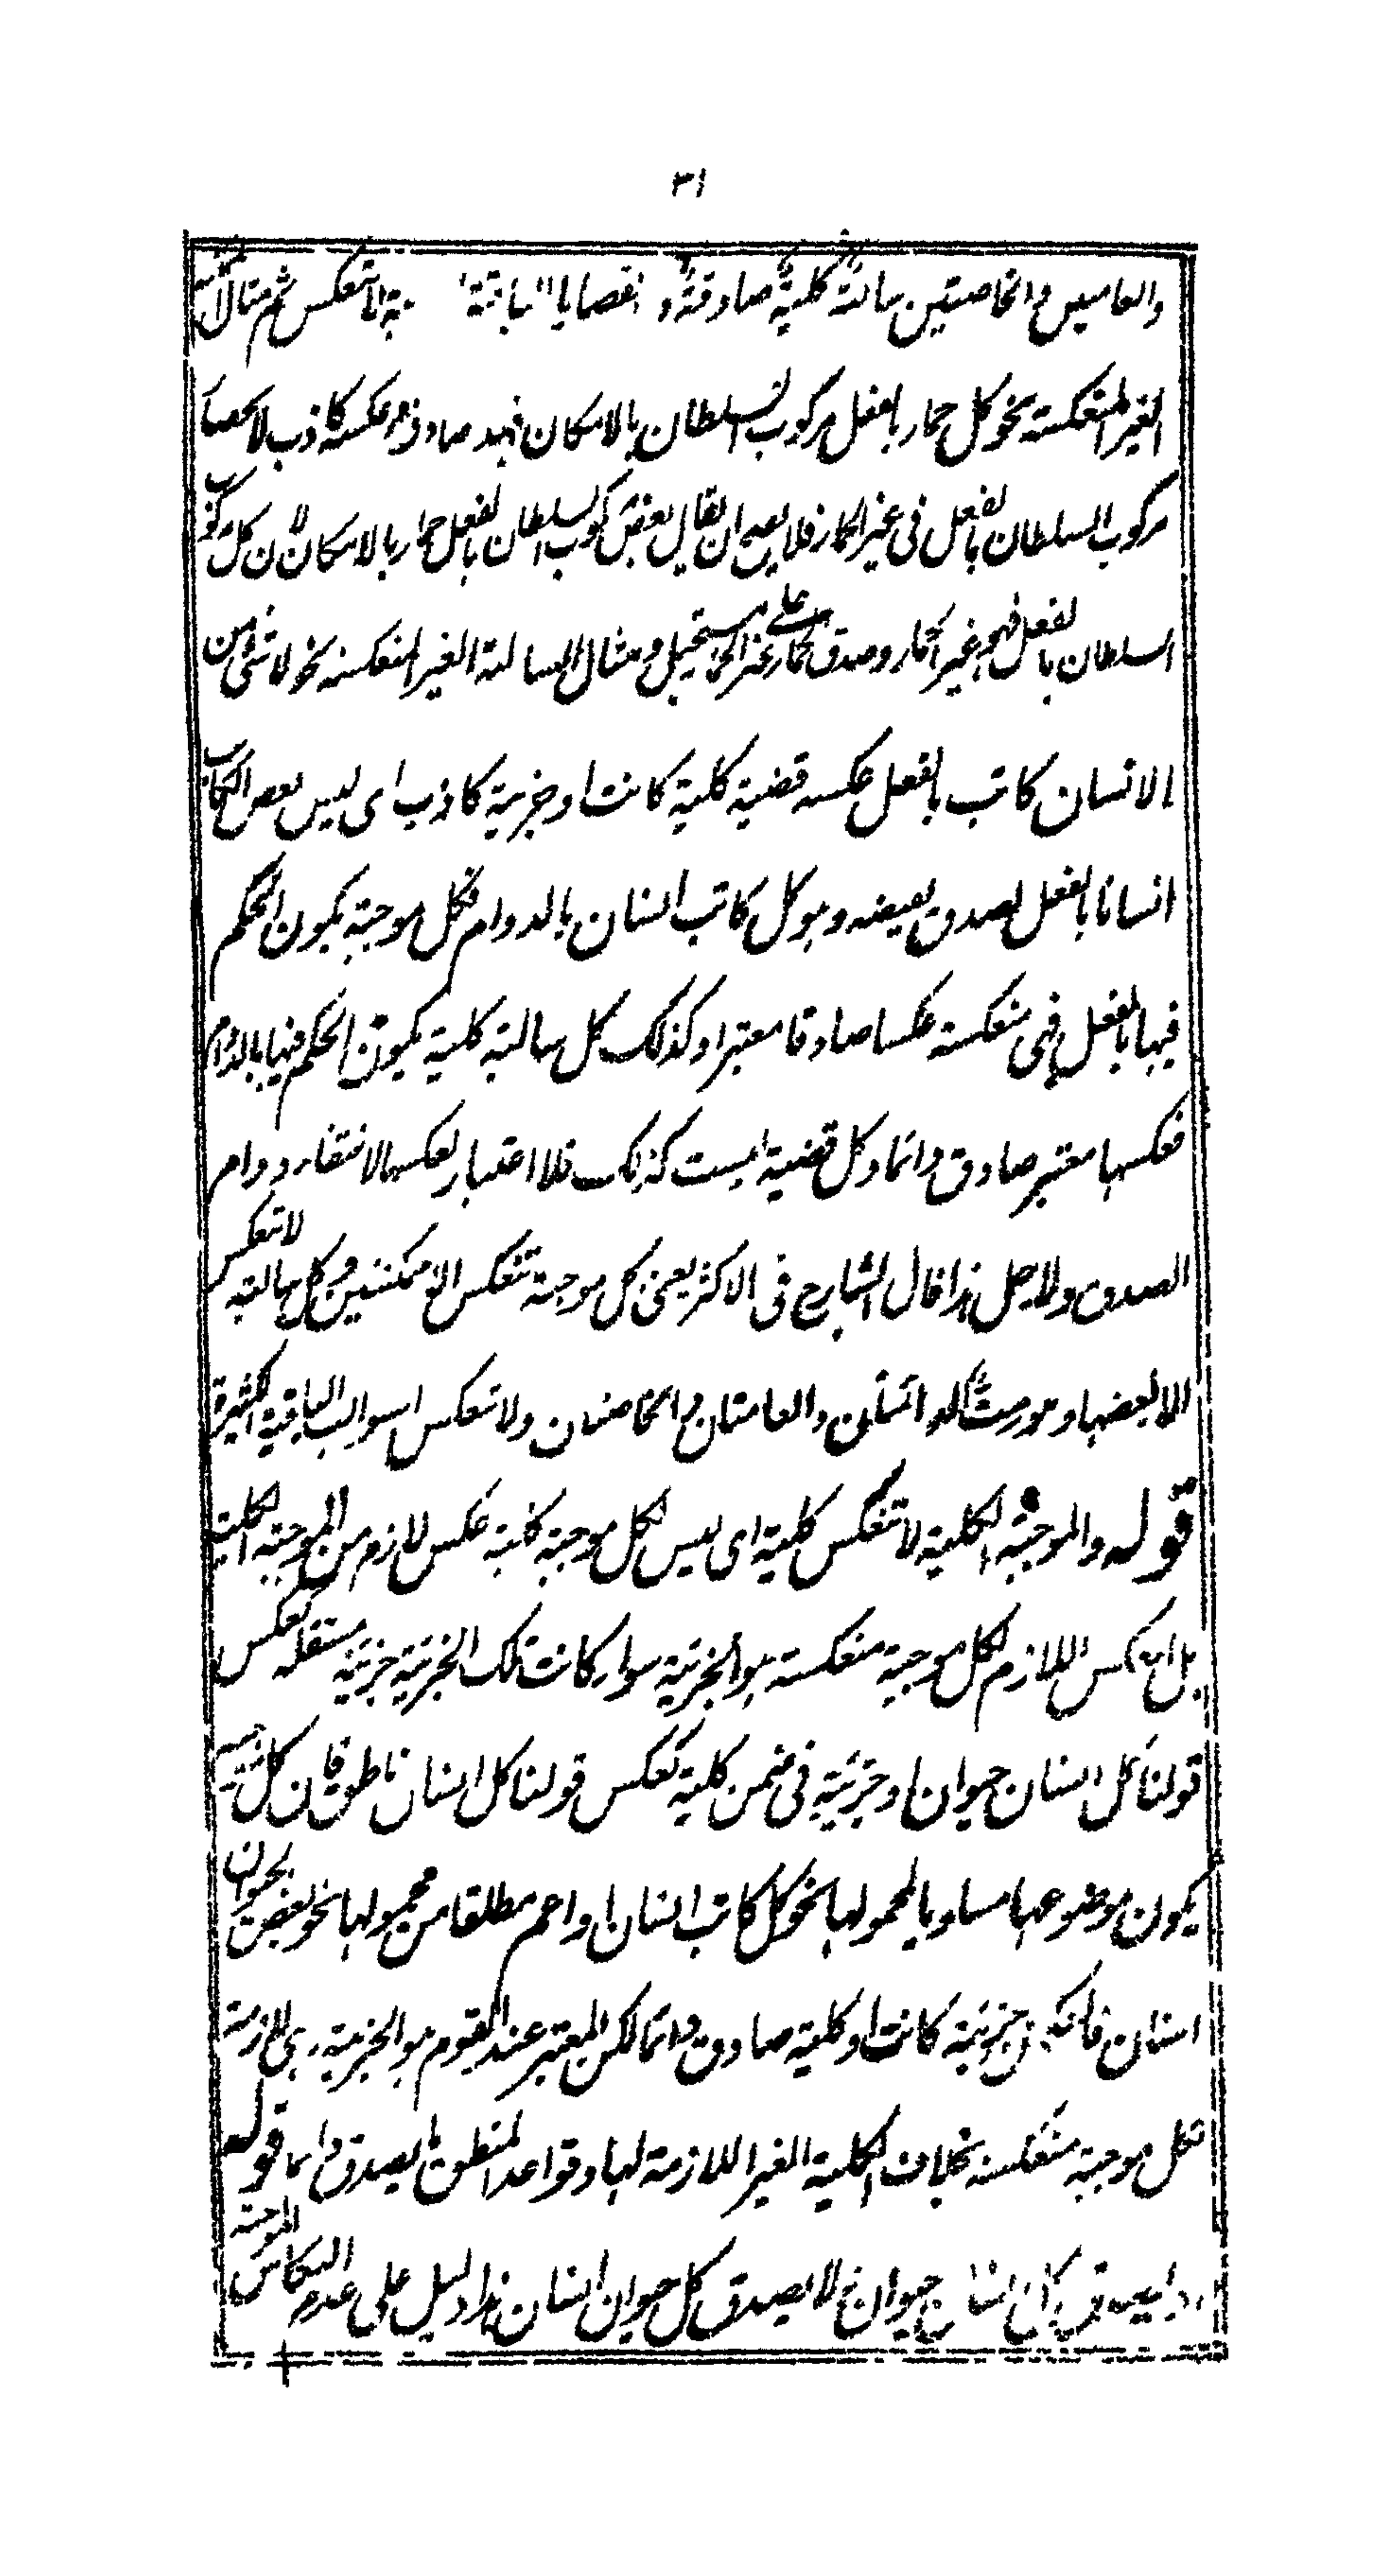 ٣١
والعاميين والخاصتين سالبة كلية صادقة والقضايا الباقية لا تنعكس ثم مثال
الغير المنعكسة نحو كل حمار بالفعل مركوب السلطان بالامكان فهذه صادق وعكسه كاذب لانحصار
مركوب السلطان بالفعل فى غير الحمار فلا يصح ان يقال بعض مركوب السلطان بالفعل حمار بالامكان لان كل مركوب
السلطان بالفعل فهو غير الحمار وصدق الحمار على غير الحمار مستحيل ومثال السالبة الغير المنعكسة نحو لا شئ من
الانسان كاتب بالفعل عكسه قضية كلية كانت او جزئية كاذب اى ليس بعض الكاتب
انسانا بالفعل لصدق نقيضه وهو كل كاتب انسان بالدوام فكل موجبة يكون الحكم
فيها بالفعل فهى منعكسة عكسا صادقا معتبرا وكذلك كل سالبة كلية يكون الحكم فيها بالدوام
فعكسها معتبر صادق دائما وكل قضية ليست كذلك فلا اعتبار لعكسها لانتفاء دوام
الصدق ولاجل هذا قال الشارح فى الاكثر يعنى كل موجبة تنعكس الا الممكنتين وكل سالبة لا تنعكس
الا بعضها وهو ست الدائمتان والعامتان والخاصتان ولا تنعكس السوالب الباقية الكثيرة
قوله والموجبة الكلية لا تنعكس كلية اى ليس لكل موجبة كلية عكس لازم من الموجبة الكلية
بل العكس اللازم لكل موجبة منعكسة هو الجزئية سواء كانت تلك الجزئية جزئية مستقلة كعكس
قولنا كل انسان حيوان او جزئية فى ضمن كلية كعكس قولنا كل انسان ناطق فان كل قضية
يكون موضوعها مساويا لمحمولها نحو كل كاتب انسان او اعم مطلقا من محمولها نحو بعض الحيوان
انسان فعكسه جزئية كانت او كلية صادق دائما لكن المعتبر عند القوم هو الجزئية هى لازمة
لكل موجبة منعكسة بخلاف الكلية الغير اللازمة لها وقواعد المنطق ما يصدق دائما قوله
اذ يصدق كل انسان حيوان لا يصدق كل حيوان انسان هذا دليل على عدم انعكاس الموجبة